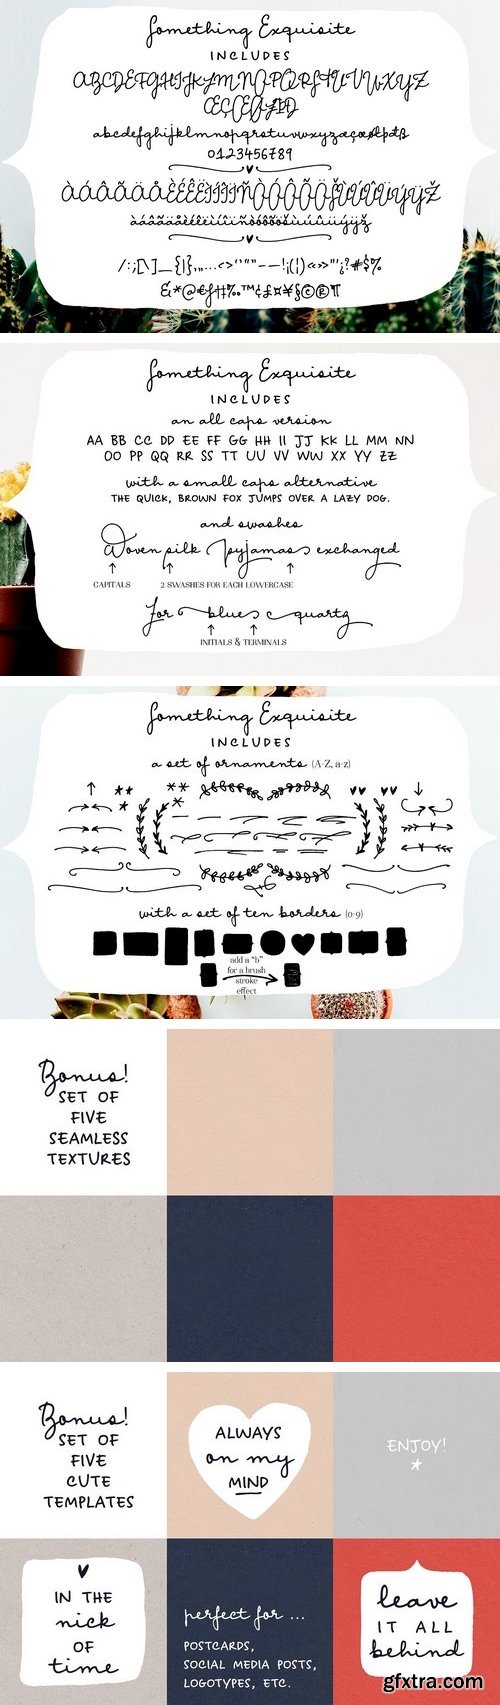 Something Exquisite
INCLUDES
ABCDEFGHIJKLMNOPQRSTUVWXYZ
abcdefghijklmnopqrstuvwxyzæçœøłþðß
0123456789
àáâãäåèéêëìíîïñòóôõöšùúûüýÿž
Something Exquisite
INCLUDES
an all caps version
AA BB CC DD EE FF GG HH II JJ KK LL MM NN
OO PP QQ RR SS TT UU VV WW XX YY ZZ
with a small caps alternative
THE QUICK, BROWN FOX JUMPS OVER A LAZY DOG.
and swashes
Woven silk pyjamas exchanged
CAPITALS 2 SWASHES FOR EACH LOWERCASE
For blue quartz
INITIALS & TERMINALS
Something Exquisite
INCLUDES
a set of ornaments (A-Z, a-z)
with a set of ten borders (0-9)
add a "b"
for a brush
stroke
effect
Bonus!
SET OF
FIVE
SEAMLESS
TEXTURES
Bonus!
SET OF
FIVE
CUTE
TEMPLATES
ALWAYS
on my
MIND
ENJOY!
IN THE
nick
OF
time
perfect for ...
POSTCARDS,
SOCIAL MEDIA POSTS,
LOGOTYPES, ETC.
leave
IT ALL
behind
gfxtra.com